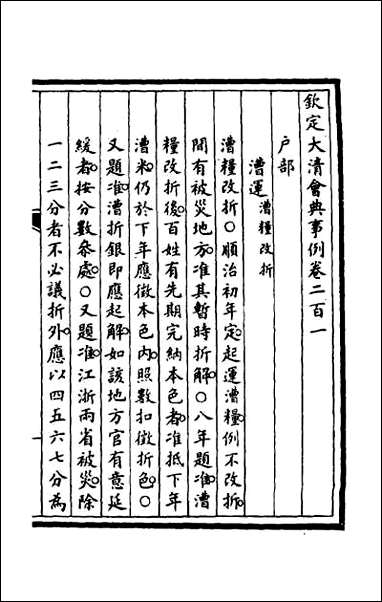 欽定大清會典事例卷二百一
户部
漕運漕糧改折
漕糧改折○順治初年定起運漕糧例不改折
間有被災地方准其暫時折解○八年題准漕
糧改折後百姓有先期完納本色者准抵下年
漕米仍於下年應徵本色内照數扣徵折色○
又題准漕折銀即應起解如該地方官有意延
緩者按分數叅處○又題准江浙兩省被災除
一二三分者不必議折外應以四五六七分為